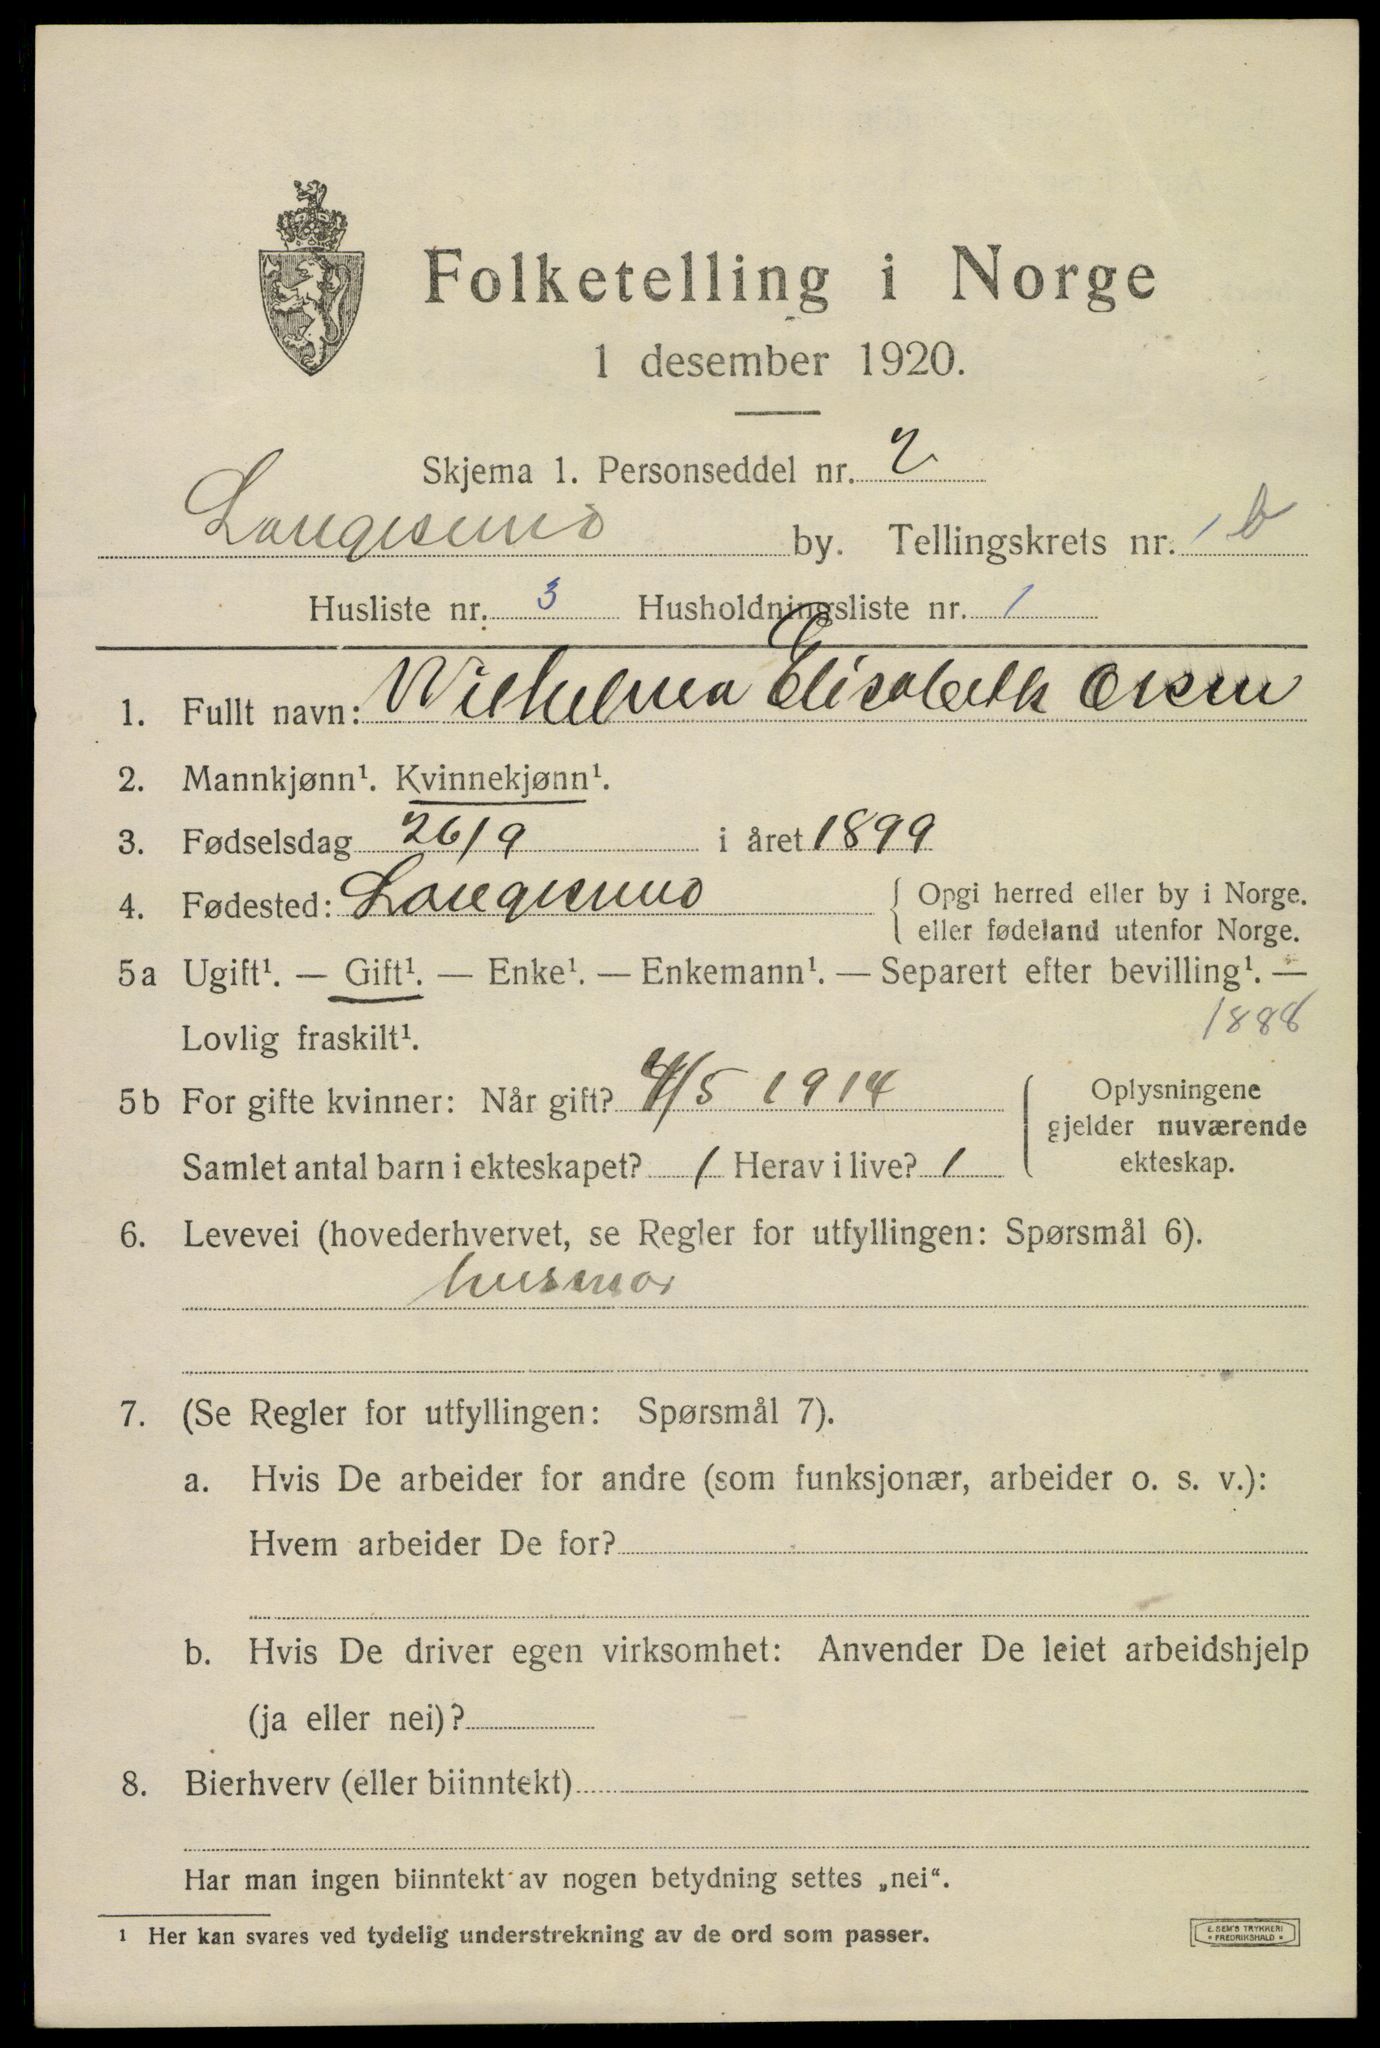 Folketelling i Norge
1 desember 1920.
Skjema 1. Personseddel nr. 2
Langesund by. Tellingskrets nr. 1 b
Husliste nr. 3 Husholdningsliste nr. 1
1. Fullt navn: Wilhelmea Elisabeth
2. Mannkjønn¹. Kvinnekjønn¹.
3. Fødselsdag 26/9 i året 1899
4. Fødested: Langesund { Opgi herred eller by i Norge.
eller fødeland utenfor Norge.
5a Ugift¹. — Gift¹. — Enke¹. — Enkemann¹. — Separert efter bevilling¹. —
Lovlig fraskilt¹. 1888
5b For gifte kvinner: Når gift? 4/5 1914
Samlet antal barn i ekteskapet? 1 Herav i live? 1
Oplysningene
gjelder nuværende
ekteskap.
6. Levevei (hovederhvervet, se Regler for utfyllingen: Spørsmål 6).
husmor
7. (Se Regler for utfyllingen: Spørsmål 7).
a. Hvis De arbeider for andre (som funksjonær, arbeider o. s. v.):
Hvem arbeider De for?
b. Hvis De driver egen virksomhet: Anvender De leiet arbeidshjelp
(ja eller nei)?
8. Bierhverv (eller biinntekt)
Har man ingen biinntekt av nogen betydning settes „nei“.
¹ Her kan svares ved tydelig understrekning av de ord som passer.
E. SEM'S TRYKKERI
* FREDRIKSHALD *